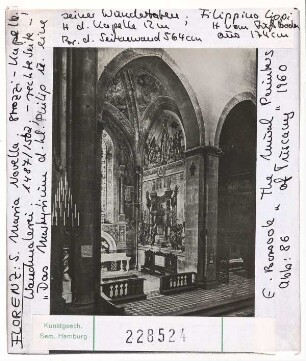 FLORENZ: S. Maria Novella. Strozzi-Kapelle.
Wandmalerei: 1487/1502: rechte Seite:
"Das Martyrium d. hl. Philip u. eine
seiner Wundertaten; Filippino Lippi;
H d. Kapelle 12 m H vom Fußboden
Br. d. Seitenwand 564 cm aus 174 cm
E. Borsook "The Mural Painters
of Tuscany" 1960
Abb: 86
Kunstgesch.
Sem. Hamburg
228524